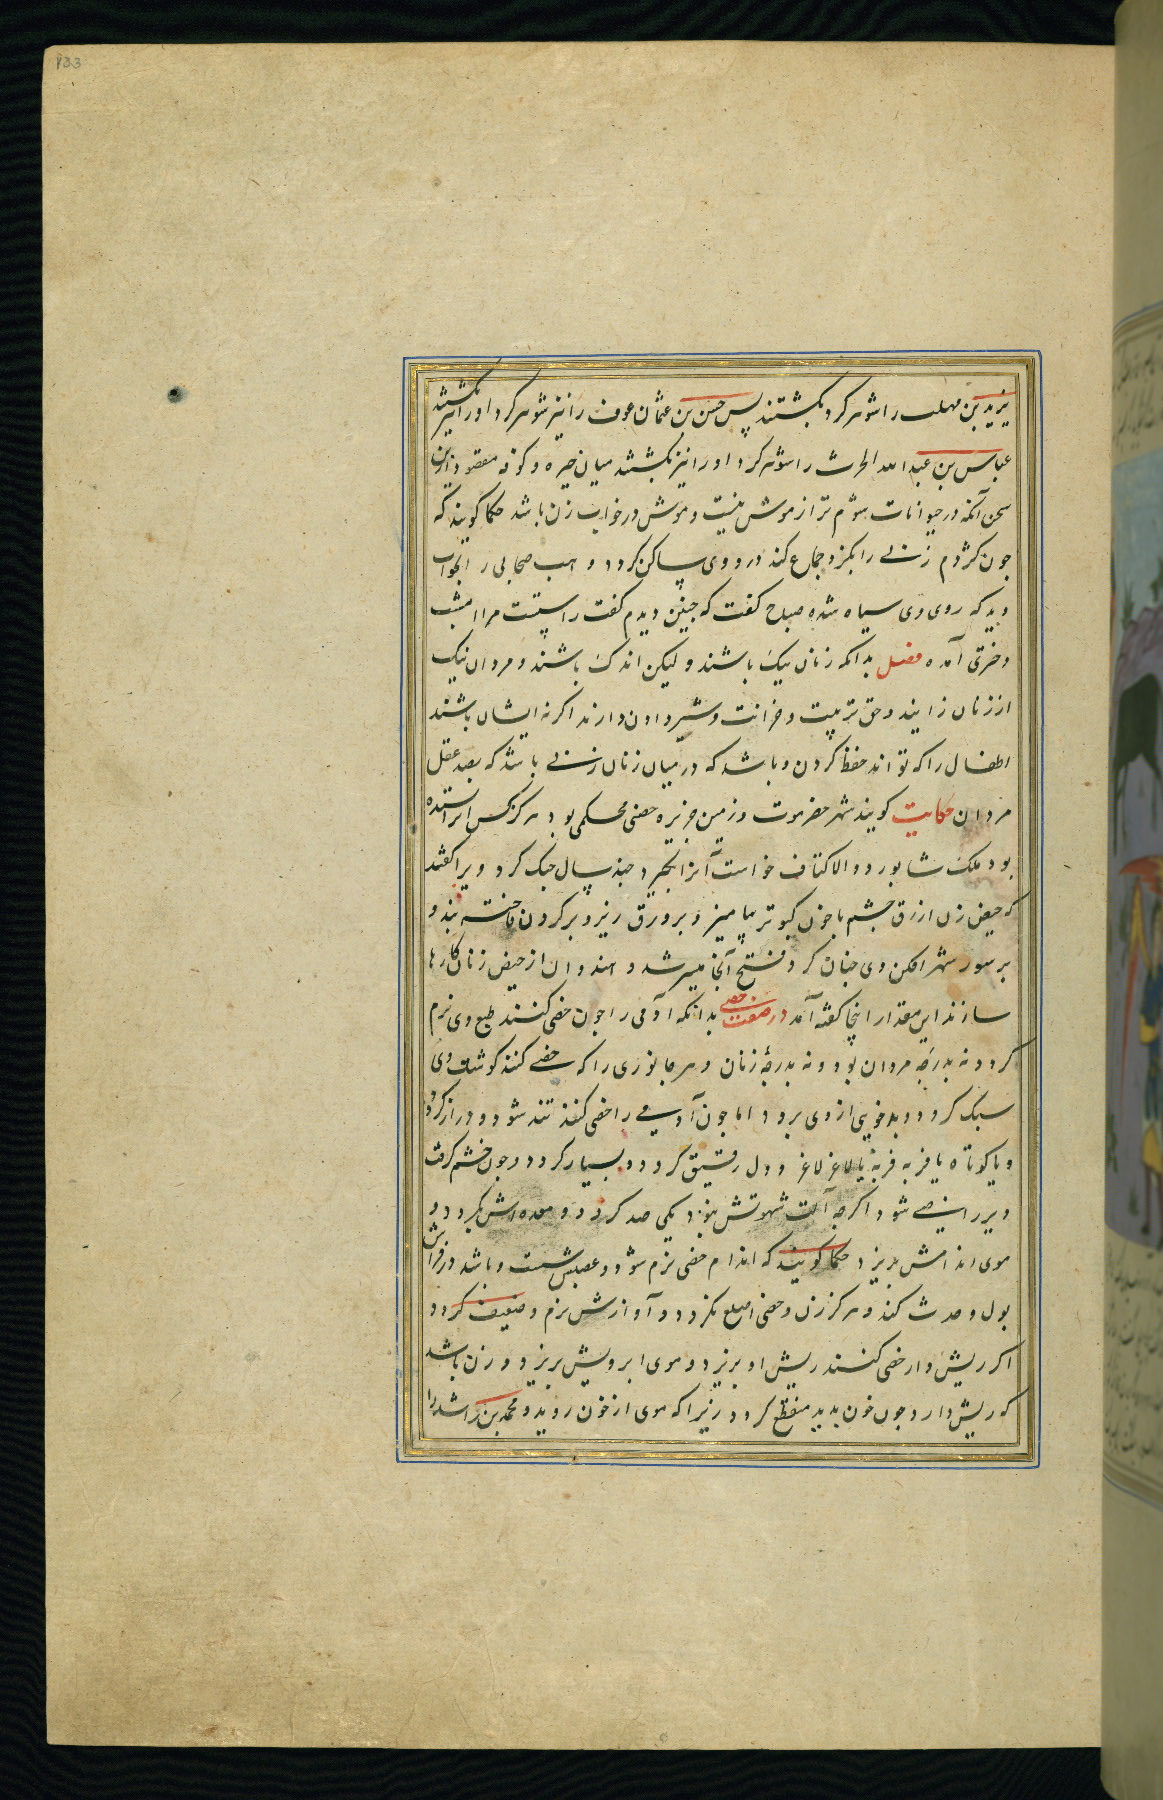 133
یزید بن مهلب را شوهر کرد بکشتند پس حسن بن عثمان عوف را نیز شوهر کرد او را نیز بکشتند
عباس بن عبد الله الحرث را شوهر کرد او را نیز بکشتند میان حیره و کوفه مقصود ازین
سخن آنکه در حیوانات شوم تر از موش نیست و موش در خواب زن باشد حکما کویند که
جون کژدم زنی را بکزد جماع کند درد وی ساکن کردد و اسب صحابی را بخواب
دید که روی وی سیاه شده صباح کفت که جنین دیدم کفت راستست مرا امشب
دختری آمده فصل بدانکه زنان نیک باشند و لیکن اندک باشند و مردان نیک
از زنان زایند و حق تربیت و حرانت و شیر دادن دارند اکر نه ایشان باشند
اطفال را که تواند حفظ کردن و باشد که در میان زنان زنی باشد که بصد عقل
مردان حکایت کویند شهر حضرموت در زمین جزیره حصنی محکمی بود هرکز کس انرا نستده
بود ملک شابور ذو الاکتاف خواست آنرا بکیرد جند سال جنک کرد ویرا کفتند
که حیض زن ازرق جشم با خون کبوتر بیامیز و بر ورق ریز و بر کردن فاخته بند و
بر سور شهر افکن وی جنان کرد فتح آنجا میسر شد و هندوان از حیض زنان کارها
سازند این مقدار اینجا کفته آمد در صفت خصی بدانکه آدمی را جون خصی کنند طبع وی نرم
کردد نه بدرجه مردان بود و نه بدرجه زنان و هر جانوری را که خصی کنند کوشت وی
سبک کردد و بدخویی از وی برود اما جون آدمی را خصی کنند تند شود و دراز کردد
و یا کوتاه یا فربه فربه یا لاغر لاغر و دل رقیق کردد و بسیار کردد و جون خشم کرفت
دیر راضی شود اکرجه آلت شهوتش بود یکی صد کردد و معده اش بکردد و
موی اندامش بریزد حکما کویند که اندام خصی نرم شود و عصبش سست و باشد در فراش
بول و حدث کند و هرکز زن و خصی اصلع نکردد و آوازش نرم و ضعیف کردد
اکر ریش دار خصی کنند ریش او بریزد و موی ابرویش بریزد و زن باشد
که ریش دارد جون خون بدید منقطع کردد زیرا که موی از خون روید و محمد بن راشد را